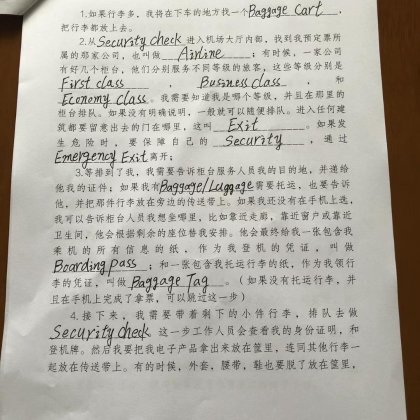 1.如果行李多，我将在下车的地方找一个 Baggage Cart ，
把行李都放上去。
2.从 Security check 进入机场大厅内部，找到我预定票所
属的那家公司，也叫做 Airline ；有时候，一家公司
有好几个柜台，他们分别服务不同等级的旅客，这些等级分别是
First class ， Business class ， 和
Economy class。我需要知道我是哪个等级，并且在那里的
柜台排队。如果没有明确说明，一般就可以随便排队。进入任何建
筑都要留意出去的门在哪里，这叫 Exit 。如果发
生危险时，要保障自己的 Security ，通过
Emergency Exit 离开；
3.等排到了我，我需要告诉柜台服务人员我的目的地，并递给
他我的证件；如果我有 Baggage/Luggage 需要托运，也要告诉
他，并把那件行李放在旁边的传送带上。如果我还没有在手机上选，
我可以告诉柜台人员我想坐哪里，比如靠近走廊，靠近窗户或靠近
卫生间，他会根据剩余的座位替我安排。他会最终给我一张包含我
乘机的所有信息的纸，作为我登机的凭证，叫做
Boarding pass ；和一张包含我托运行李的纸，作为我领行
李的凭证，叫做 Baggage Tag 。（如果没有托运行李，并
且在手机上完成了拿票，可以跳过这一步）
4.接下来，我需要带着剩下的小件行李，排队去做
Security check 这一步工作人员会查看我的身份证明，和
登机牌。然后我要把我电子产品拿出来放在筐里，连同其他行李一
起放在传送带上。有的时候，外套，腰带，鞋也要脱了放在筐里，